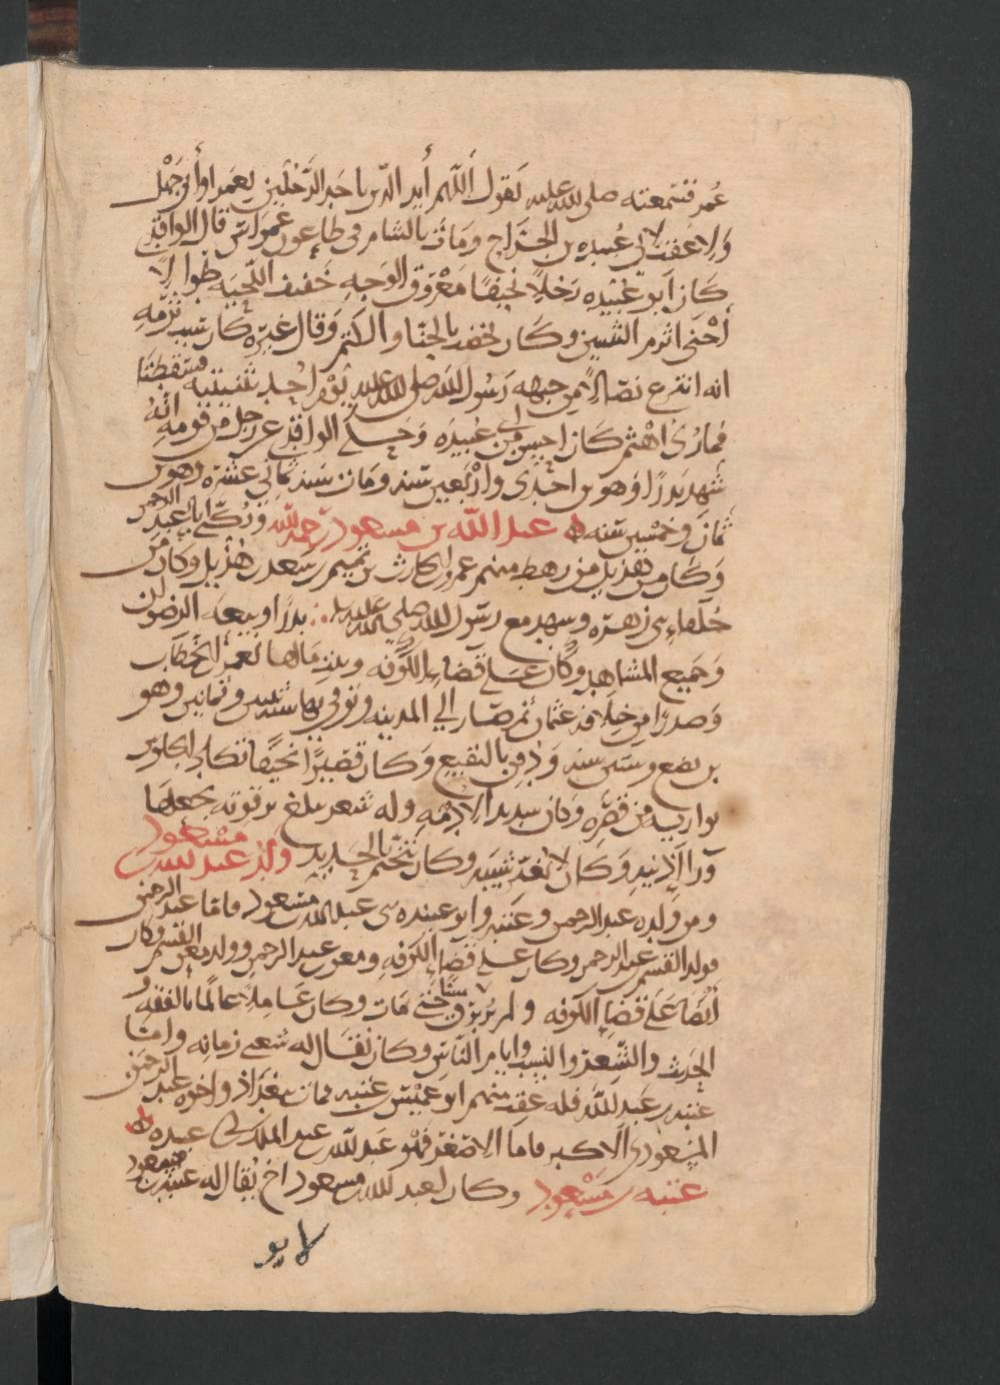 عمر فسمعته صلى الله عليه يقول اللهم أيد الدين بأحد الرجلين بعمر او أبي جهل
ولا عقب لابي عبيده بن الجراح ومات بالشام في طاعون عمواس قال الواقدي
كان ابو عبيده رجلا نحيفا معروق الوجه خفيف اللحية طوالا
أحنى اثرم الثنيتين وكان يخضب بالحنا والكتم وقال غيره كان سبب ثرمه
انه انتزع نصالا من جبهه رسول الله صلى الله عليه يوم احد بثنيتيه فسقطتا
فما رئ اهتم كان احسن من ابي عبيده وحكى الواقدي عن رجل من قومه انه
شهد بدرا وهو بن احدى واربعين سنه ومات سنه ثماني عشره وهو بن
ثمان وخمسين سنه عبد الله بن مسعود رحمه الله ويكنى ابا عبد الرحمن
وكان من هذيل من رهط منهم عمرو بن الحارث بن تميم بن سعد بن هذيل وكان من
حلفاء بني زهره وشهد مع رسول الله صلى الله عليه بدرا وبيعه الرضوان
وجميع المشاهد وكان على قضاء الكوفه وبيت مالها لعمر بن الخطاب
وصدرا من خلافه عثمان ثم صار الي المدينه وتوفي بها سنه اثنتين وثلاثين وهو
بن بضع وستين سنه ودفن بالبقيع وكان قصيرا نحيفا تكاد الجلوس
تواريه من قصره وكان شديد الادمه وله شعر يبلغ ترقوته يجعلها
ورا اذنيه وكان لا يغير شيبه وكان يتختم بالحديد ولد عبد الله بن مسعود
ومن ولده عبد الرحمن وعتبه وابو عبيده بني عبد الله بن مسعود فاما عبد الرحمن
فولد القسم بن عبد الرحمن وكان على قضاء الكوفه ومعن بن عبد الرحمن وولد معن القسم وكان
ايضا على قضا الكوفه ولم يرتزق شيا حتى مات وكان عاملا عالما بالفقه و
الحديث والشعر والنسب وايام الناس وكان يقال له شعبي زمانه واما
عتبه بن عبد الله فله عقب منهم ابو عميس عتبه مات ببغداد واخوه عبد الرحمن
المسعودي الاكبر فاما الاصغر فهو عبد الله بن عبد الملك بن ابي عبيده
عتبه بن مسعود وكان لعبد الله بن مسعود اخ يقال له عتبه بن مسعود
لابو